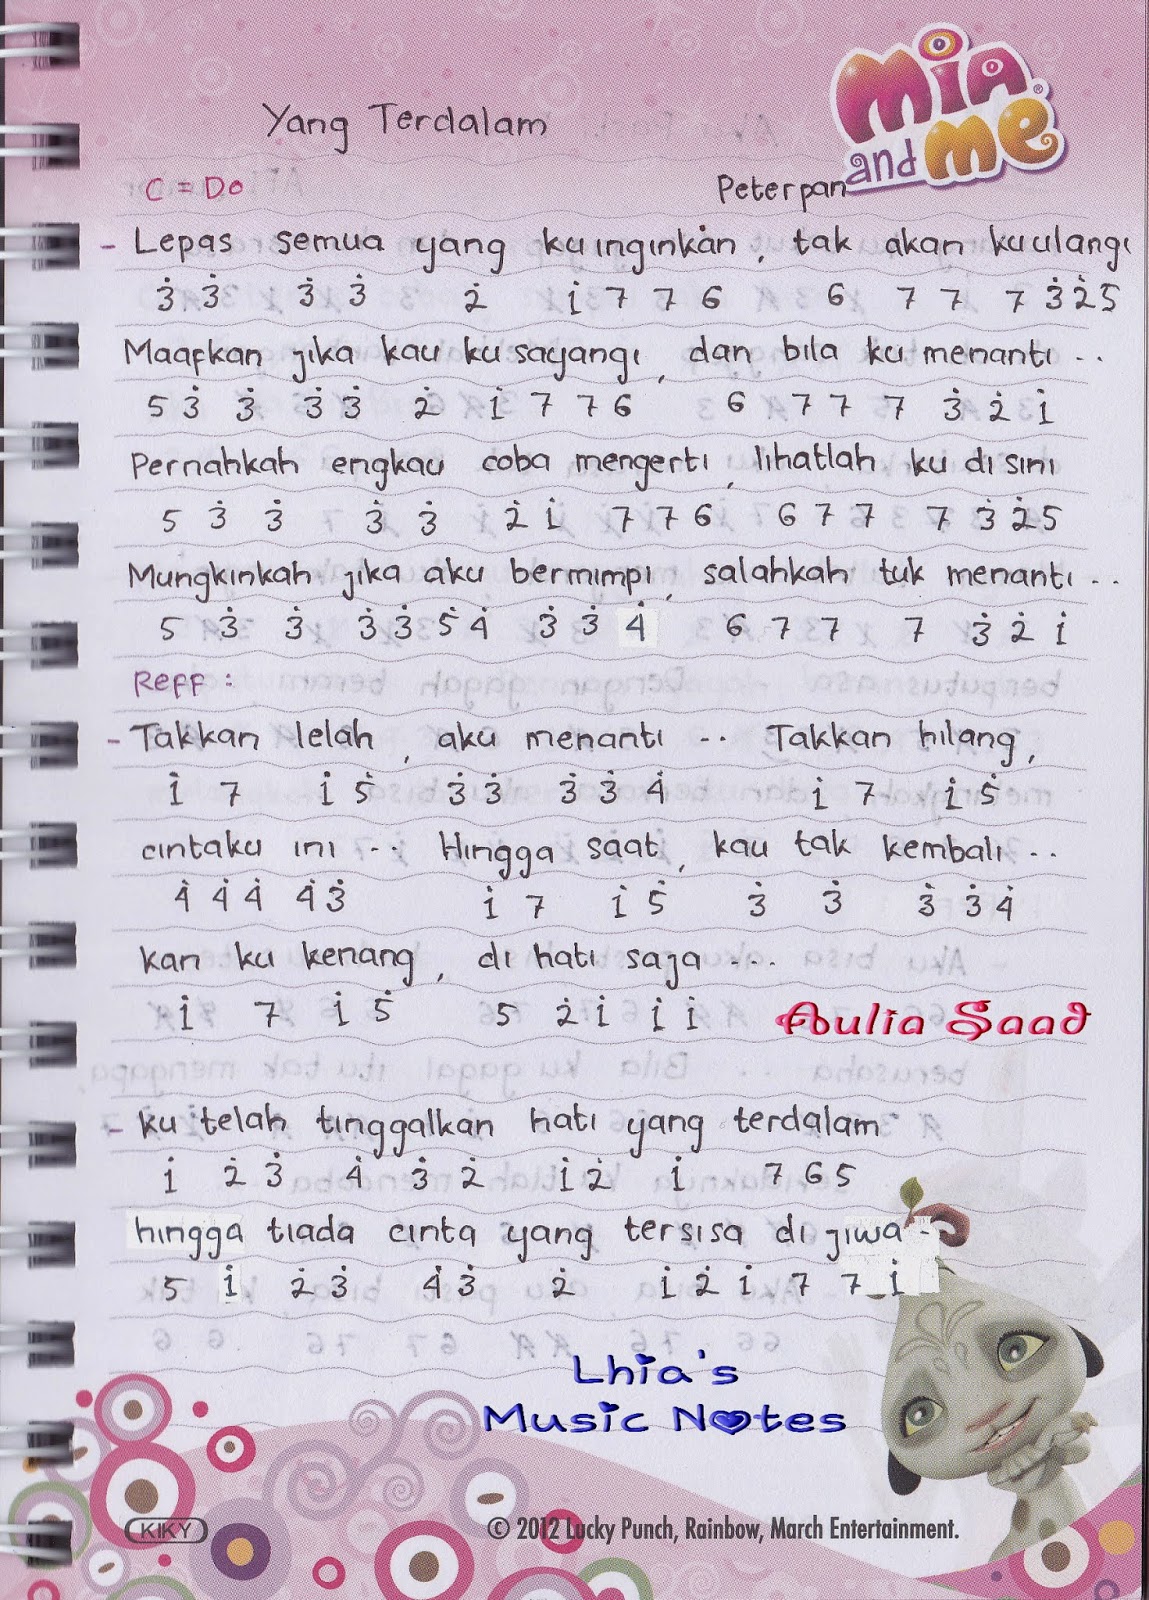 Mia and me®
Yang Terdalam
C = Do
Peterpan
- Lepas semua yang kuinginkan, tak akan kuulangi
3̇ 3̇ 3̇ 3̇ 2̇ 1̇ 7 7 6 6 7 7 7 3̇ 2̇ 5
Maafkan jika kau kusayangi, dan bila ku menanti ..
5 3̇ 3̇ 3̇ 3̇ 2̇ 1̇ 7 7 6 6 7 7 7 3̇ 2̇ 1̇
Pernahkah engkau coba mengerti, lihatlah ku di sini
5 3̇ 3̇ 3̇ 3̇ 2̇ 1̇ 7 7 6 6 7 7 7 3̇ 2̇ 5
Mungkinkah jika aku bermimpi, salahkah tuk menanti ..
5 3̇ 3̇ 3̇ 3̇ 5̇ 4̇ 3̇ 3̇ 4̇ 6 7 7 7 3̇ 2̇ 1̇
Reff :
- Takkan lelah, aku menanti .. Takkan hilang,
1̇ 7 1̇ 5̇ 3̇ 3̇ 3̇ 3̇ 4̇ 1̇ 7 1̇ 5̇
cintaku ini .. Hingga saat, kau tak kembali ..
4̇ 4̇ 4̇ 4̇ 3̇ 1̇ 7 1̇ 5̇ 3̇ 3̇ 3̇ 3̇ 4̇
kan ku kenang, di hati saja ...
1̇ 7 1̇ 5̇ 5 2̇ 1̇ 1̇ 1̇
Aulia Saad
- ku telah tinggalkan hati yang terdalam
1̇ 2̇ 3̇ 4̇ 3̇ 2̇ 1̇ 2̇ 1̇ 7 6 5
hingga tiada cinta yang tersisa di jiwa -
5 1̇ 2̇ 3̇ 4̇ 3̇ 2̇ 1̇ 2̇ 1̇ 7 7 1̇
Lhia's
Music Notes
KIKY
© 2012 Lucky Punch, Rainbow, March Entertainment.